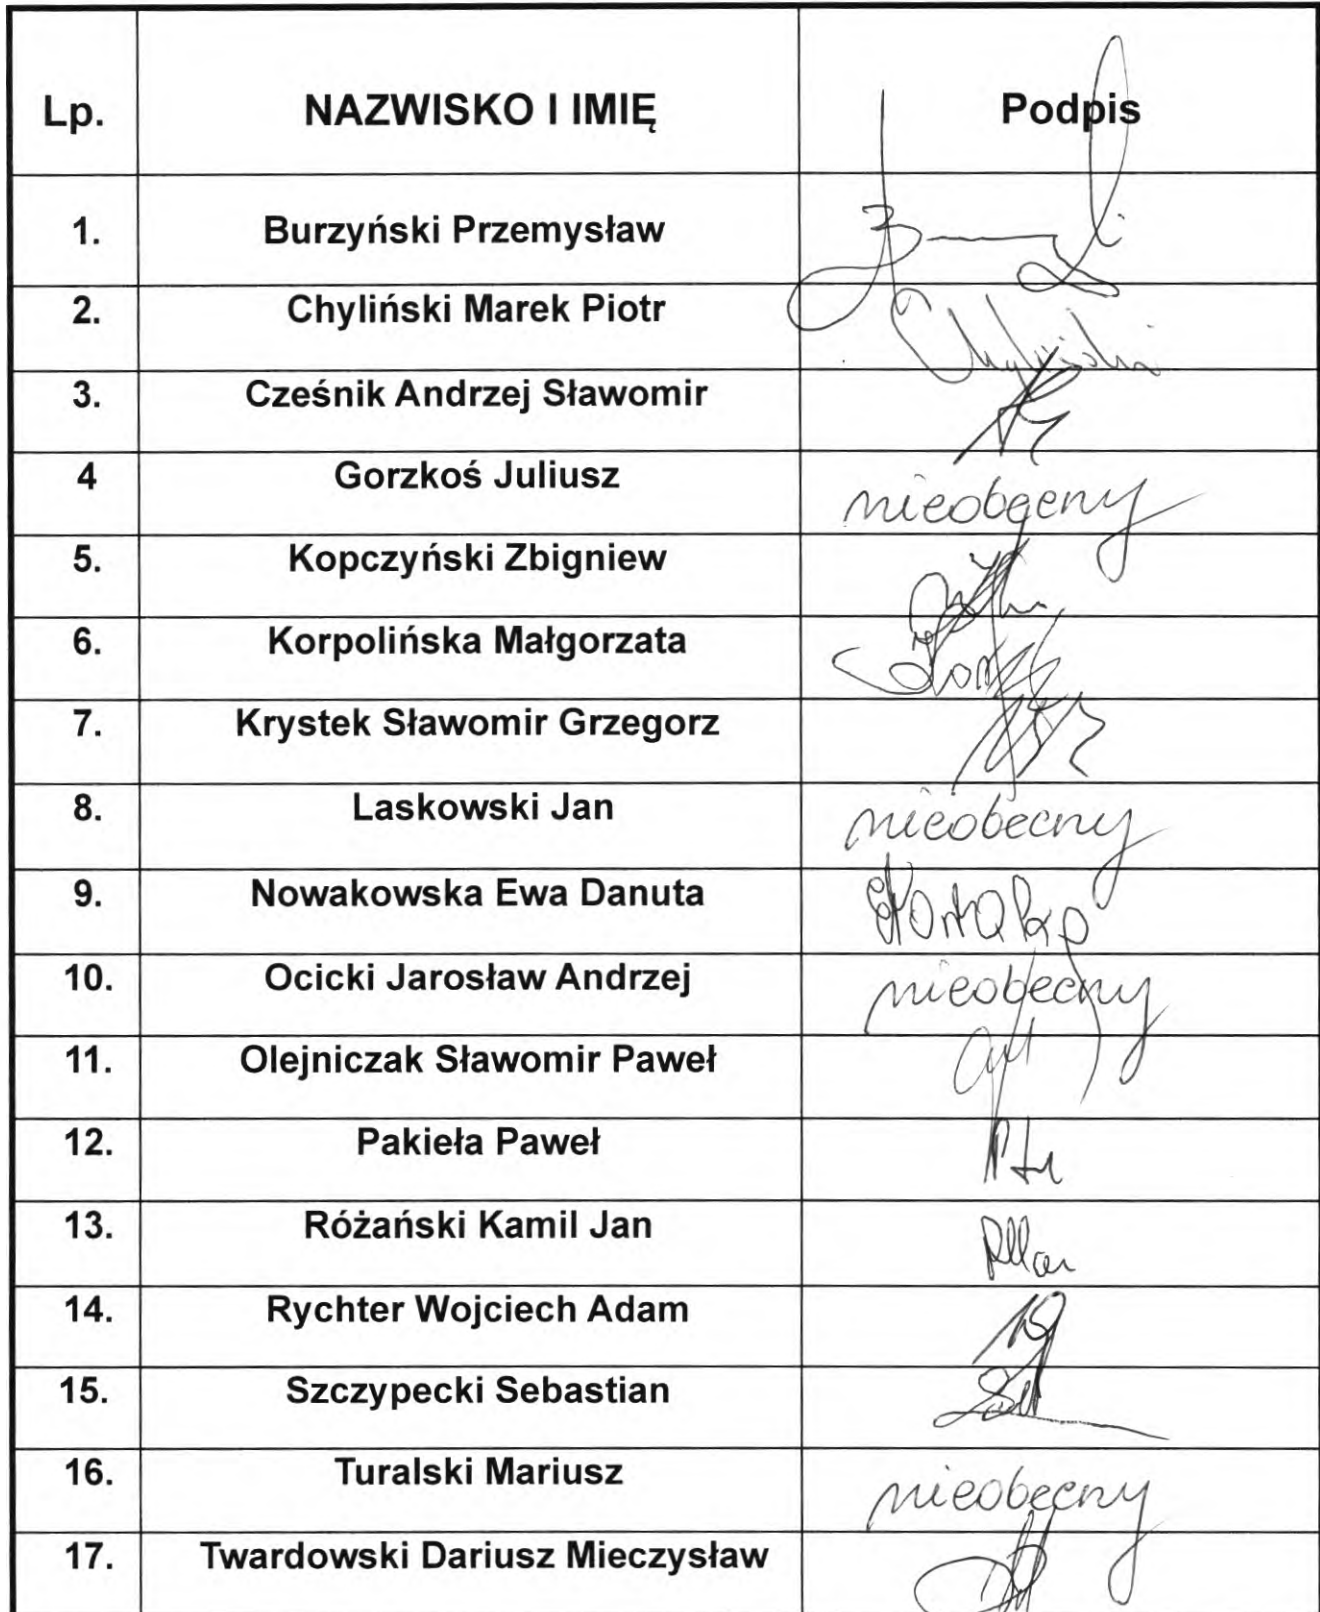 Lp. NAZWISKO I IMIĘ Podpis
1. Burzyński Przemysław
2. Chyliński Marek Piotr Chyliński
3. Cześnik Andrzej Sławomir
4 Gorzkoś Juliusz nieobecny
5. Kopczyński Zbigniew
6. Korpolińska Małgorzata
7. Krystek Sławomir Grzegorz
8. Laskowski Jan nieobecny
9. Nowakowska Ewa Danuta
10. Ocicki Jarosław Andrzej nieobecny
11. Olejniczak Sławomir Paweł
12. Pakieła Paweł
13. Różański Kamil Jan
14. Rychter Wojciech Adam
15. Szczypecki Sebastian
16. Turalski Mariusz nieobecny
17. Twardowski Dariusz Mieczysław